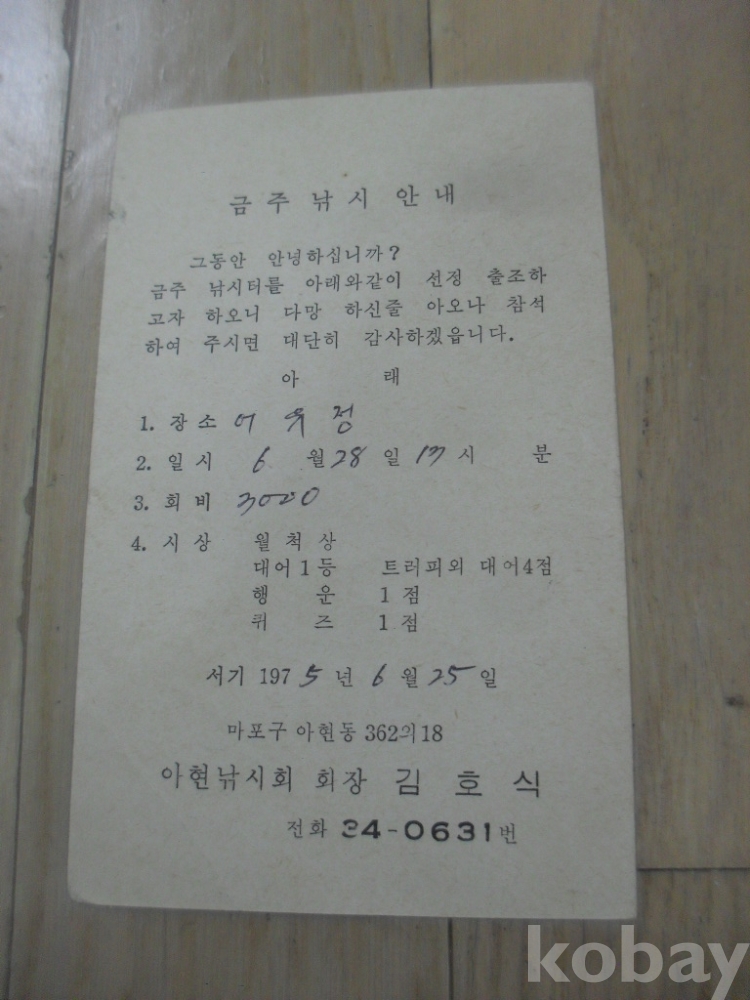 금주낚시안내
그동안 안녕하십니까?
금주 낚시터를 아래와같이 선정 출조하
고자 하오니 다망 하신줄 아오나 참석
하여 주시면 대단히 감사하겠읍니다.
아 래
1. 장소 어유정
2. 일시 6 월 28 일 17 시 분
3. 회비 3000
4. 시상 월척상
대어1등 트러피외 대어4점
행 운 1점
퀴 즈 1점
서기 1975년 6월 25일
마포구 아현동 362의18
아현낚시회 회장 김호식
전화 34-0631번
kobay